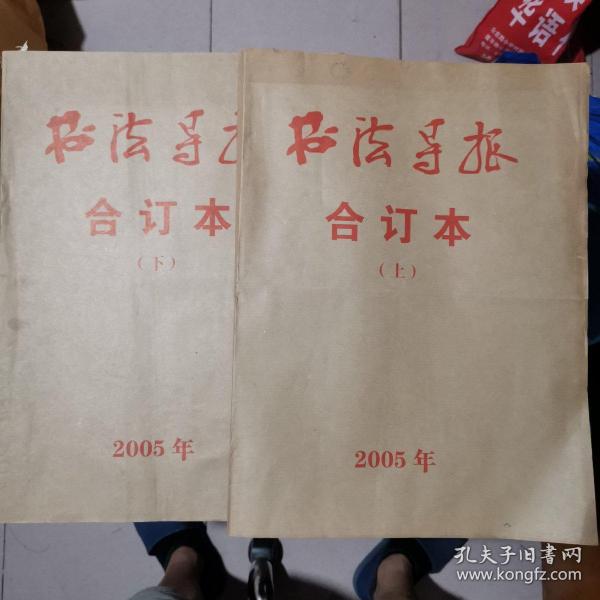 书法导报
合订本
(下)
2005年
书法导报
合订本
(上)
2005年
语
孔夫子旧书网
www.kongfz.com